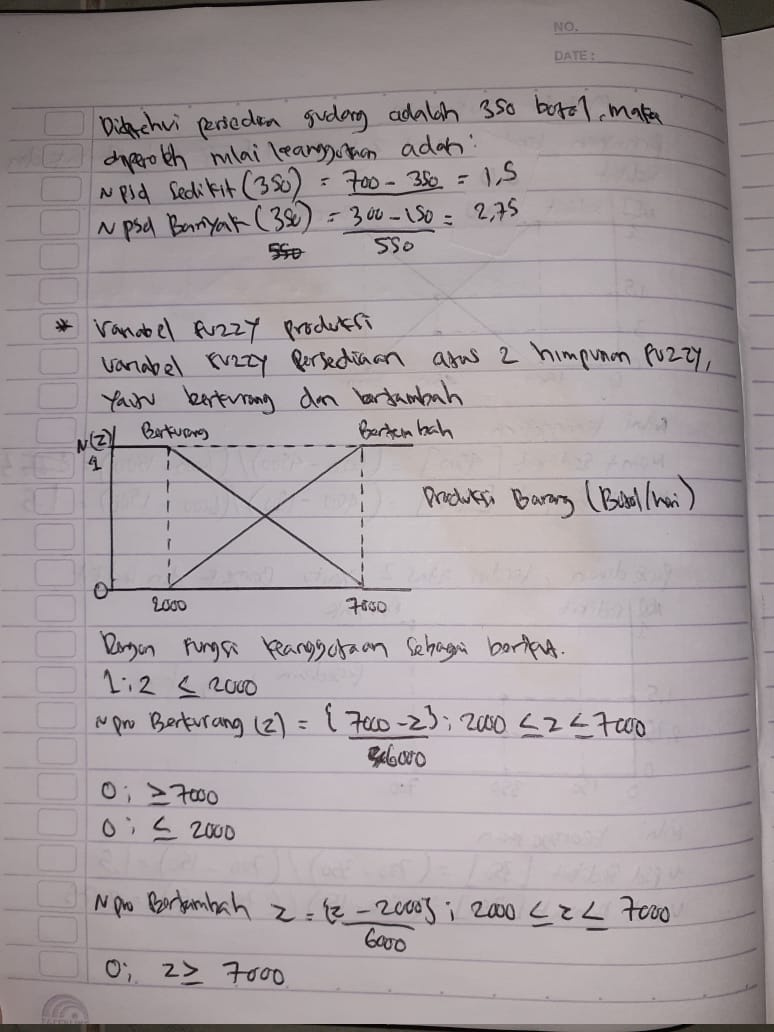 NO.
DATE:
Diketahui persedian gudang adalah 350 botol, maka
diperoleh nilai keanggotaan adah:
N psd Sedikit (350) = 700 - 350 = 1,5
N psd Banyak (350) = 300 - 150 = 2,75
550 550
* Variabel fuzzy produksi
Variabel fuzzy Persediaan atas 2 himpunan fuzzy,
yaitu berkurang dan bertambah
N(z) Berkurang Bertambah
1
Produksi Barang (Botol/hari)
0
2000 7000
Dengan Fungsi keanggotaan Sebagai berikut.
1; z ≤ 2000
N pro Berkurang (z) = { 7000 - z }; 2000 ≤ z ≤ 7000
6000
0; ≥ 7000
0; ≤ 2000
N pro Bertambah z = {z - 2000}; 2000 ≤ z ≤ 7000
6000
0; z ≥ 7000